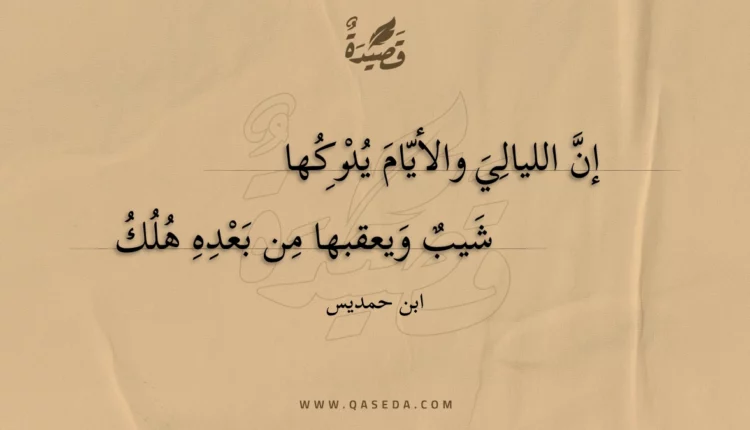 قَصِيدَةٌ
إنَّ الليالِيَ والأيّامَ يُدْوِكُها
شَيبٌ وَيعقبها مِن بَعْدِهِ هُلُكُ
ابن حمديس
WWW.QASEDA.COM